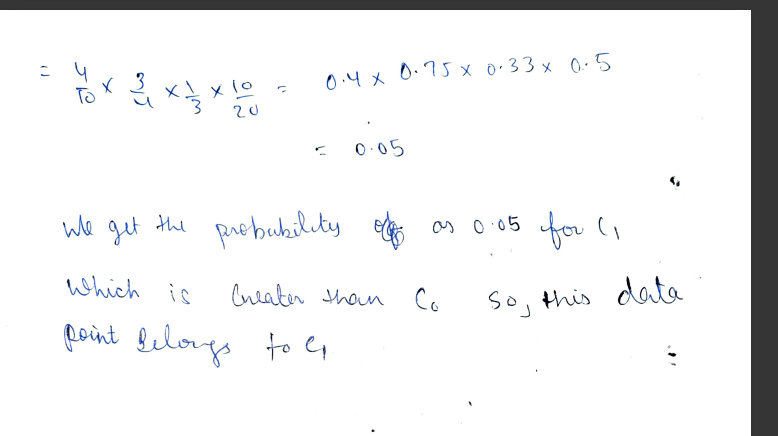 = 4/10 × 3/4 × 1/3 × 10/20 = 0.4 × 0.75 × 0.33 × 0.5
= 0.05
We get the probability as 0.05 for C1
which is Greater than C0 so, this data
point Belongs to C1